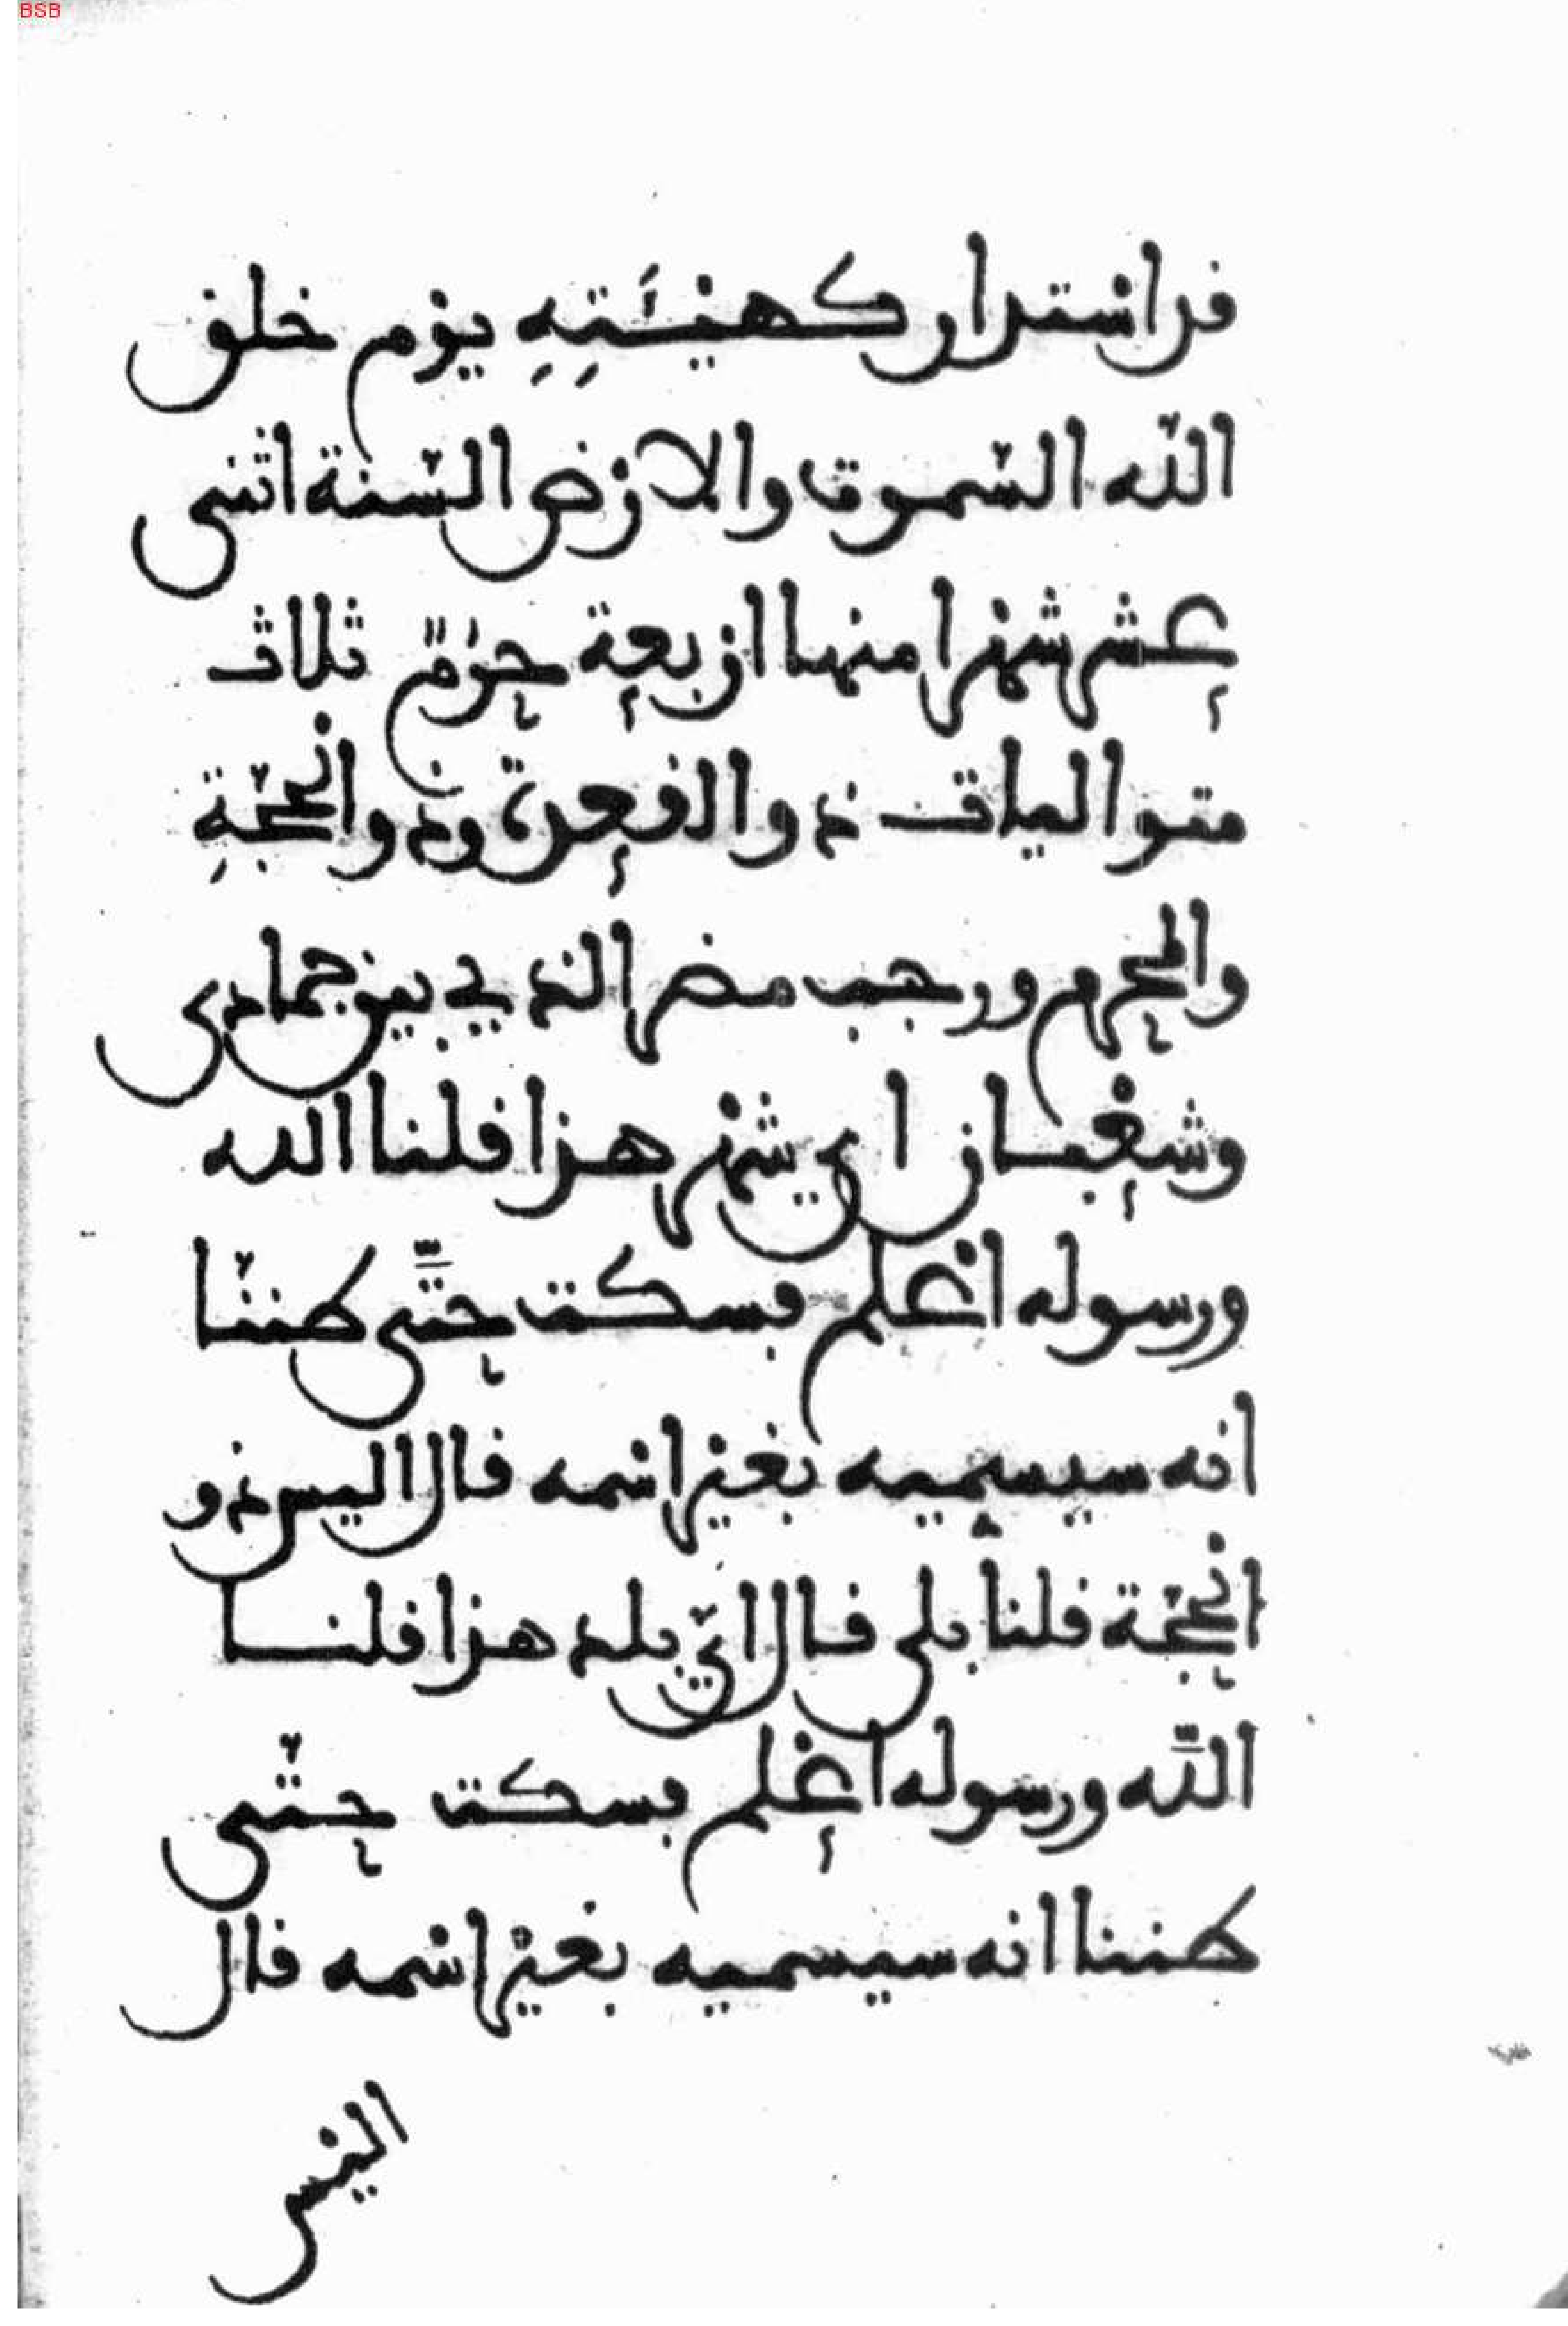 BSB
قد اسْتدار كهيْـَٔتِهِ يوْم خلق
اللّه السّموت والارْض السّنة اثْنى
عشر شهْرا منها ارْبعة حرُمٌ ثلاث
متواليات ذو القعدة وذو الْحجّةِ
والمحرم ورجب مضر الذي بين جمادى
وشعْبان اي شهْر هذا قلنا الله
ورسوله اعْلم فسكت حتَّى ظننّا
انه سيسميه بغيْر اسْمه قال اليس ذو
الْحجّة قلنا بلى قال ايّ بلد هذا قلنا
اللَّه ورسوله اعْلم فسكت حتّى
ظننا انه سيسميه بغيْر اسْمه قال
اليْس